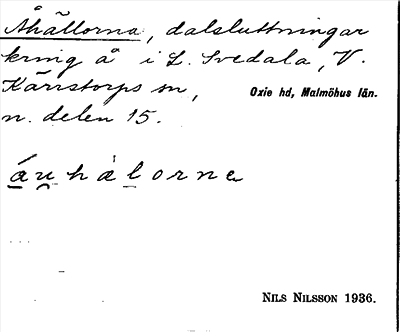 Åhällorna, dalsluttningar
kring å i L. Svedala, V.
Kärrstorps sn, Oxie hd, Malmöhus län.
n. delen 15.
áu̯hàlorna
NILS NILSSON 1936.